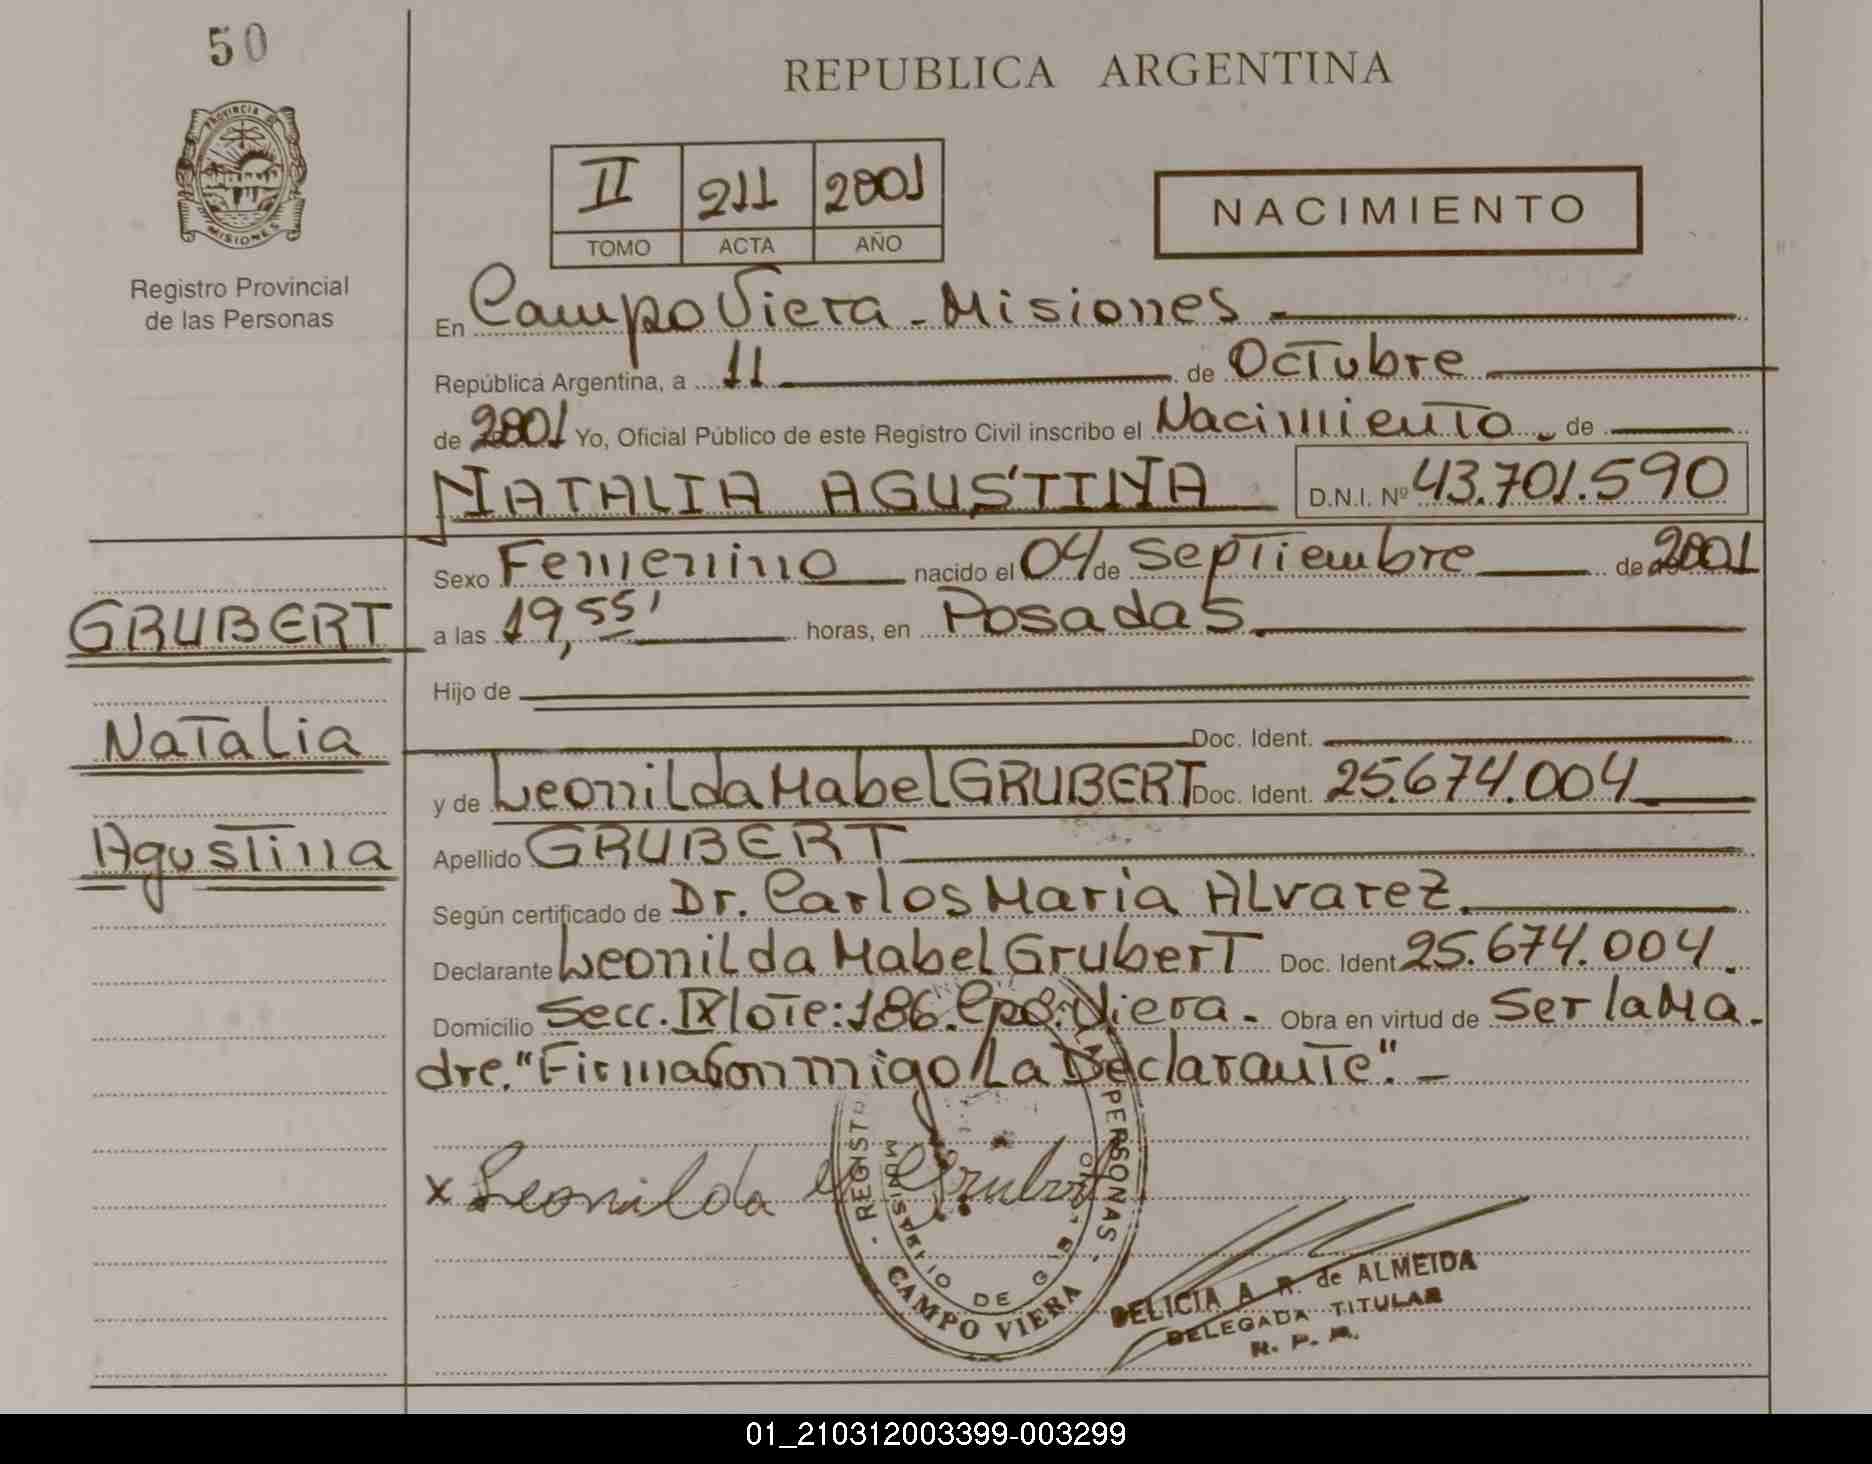 50
PROVINCIA DE
MISIONES
Registro Provincial
de las Personas
REPUBLICA ARGENTINA
II 211 2001
TOMO ACTA AÑO
NACIMIENTO
En Campo Viera - Misiones -
República Argentina, a 11 de Octubre
de 2001 Yo, Oficial Público de este Registro Civil inscribo el Nacimiento. de
NATALIA AGUSTINA D.N.I. Nº 43.701.590
Sexo Femenino nacido el 04 de Septiembre de 2001
GRUBERT
a las 19,55' horas, en Posadas.
Hijo de
Natalia
Doc. Ident.
y de Leonilda Mabel GRUBERT Doc. Ident. 25.674.004
Agustina
Apellido GRUBERT
Según certificado de Dr. Carlos Maria Alvarez.
Declarante Leonilda Mabel Grubert Doc. Ident 25.674.004.
Domicilio Secc. IX lote: 186. Cpo. Viera. - Obra en virtud de Ser la Ma.
dre. "Firma Conmigo La Declarante". -
x Leonilda M Grubert
PERSONAS - CAMPO VIERA -
MINISTERIO DE
DELICIA A. R. de ALMEIDA
DELEGADA TITULAR
R. P. P.
01_210312003399-003299